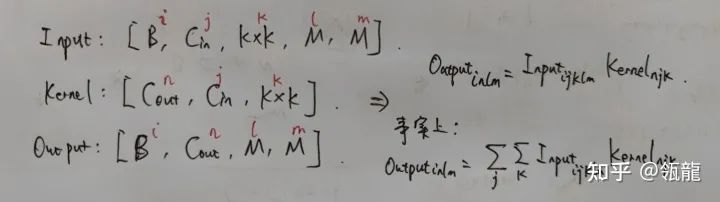 i j k l m
Input: [B, Cin, k×k, M, M].
n j k
Kernel: [Cout, Cin, k×k]. ⇒
i n l m
Output: [B, Cout, M, M].
Output_inlm = Input_ijklm Kernel_njk.
事实上:
Output_inlm = ∑_j ∑_k Input_ijk Kernel_njk
知乎 @瓴龍